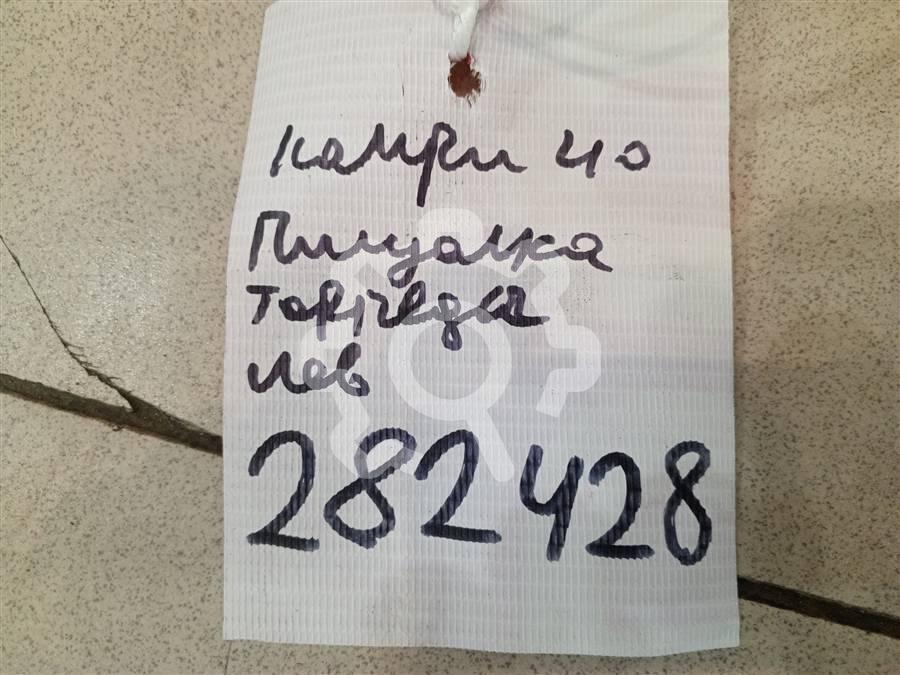 Камри 40
Пищалка
Торпеда
лев
282428